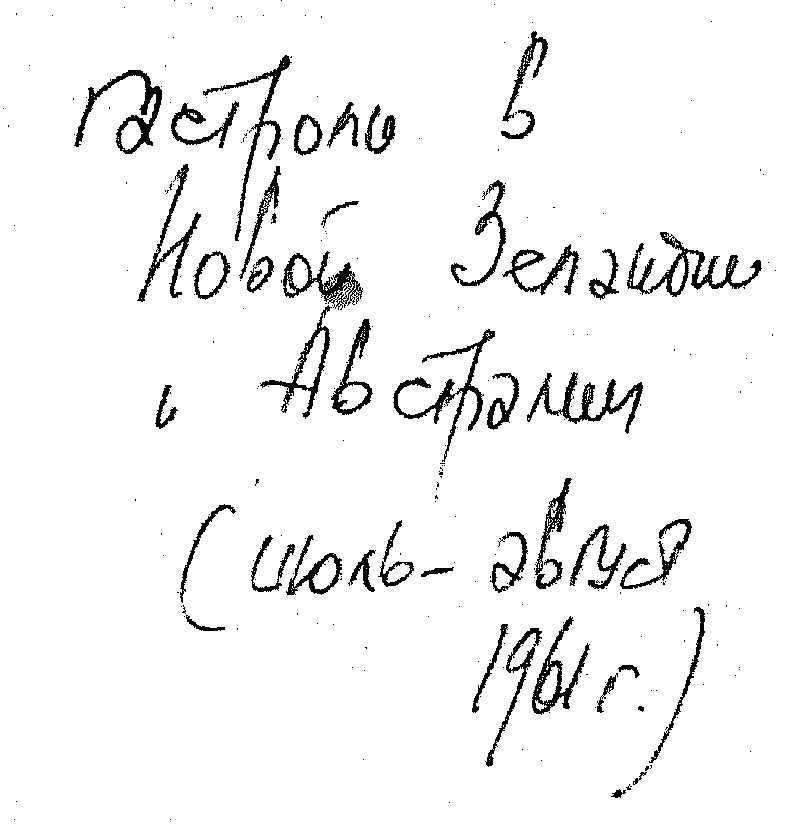 Гастроли в
Новой Зеландии
и Австралии
(июль - август
1961 г.)